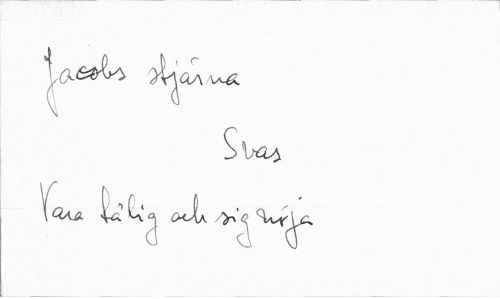 Jacobs stjärna
Svas
Vara tålig och sig nöja